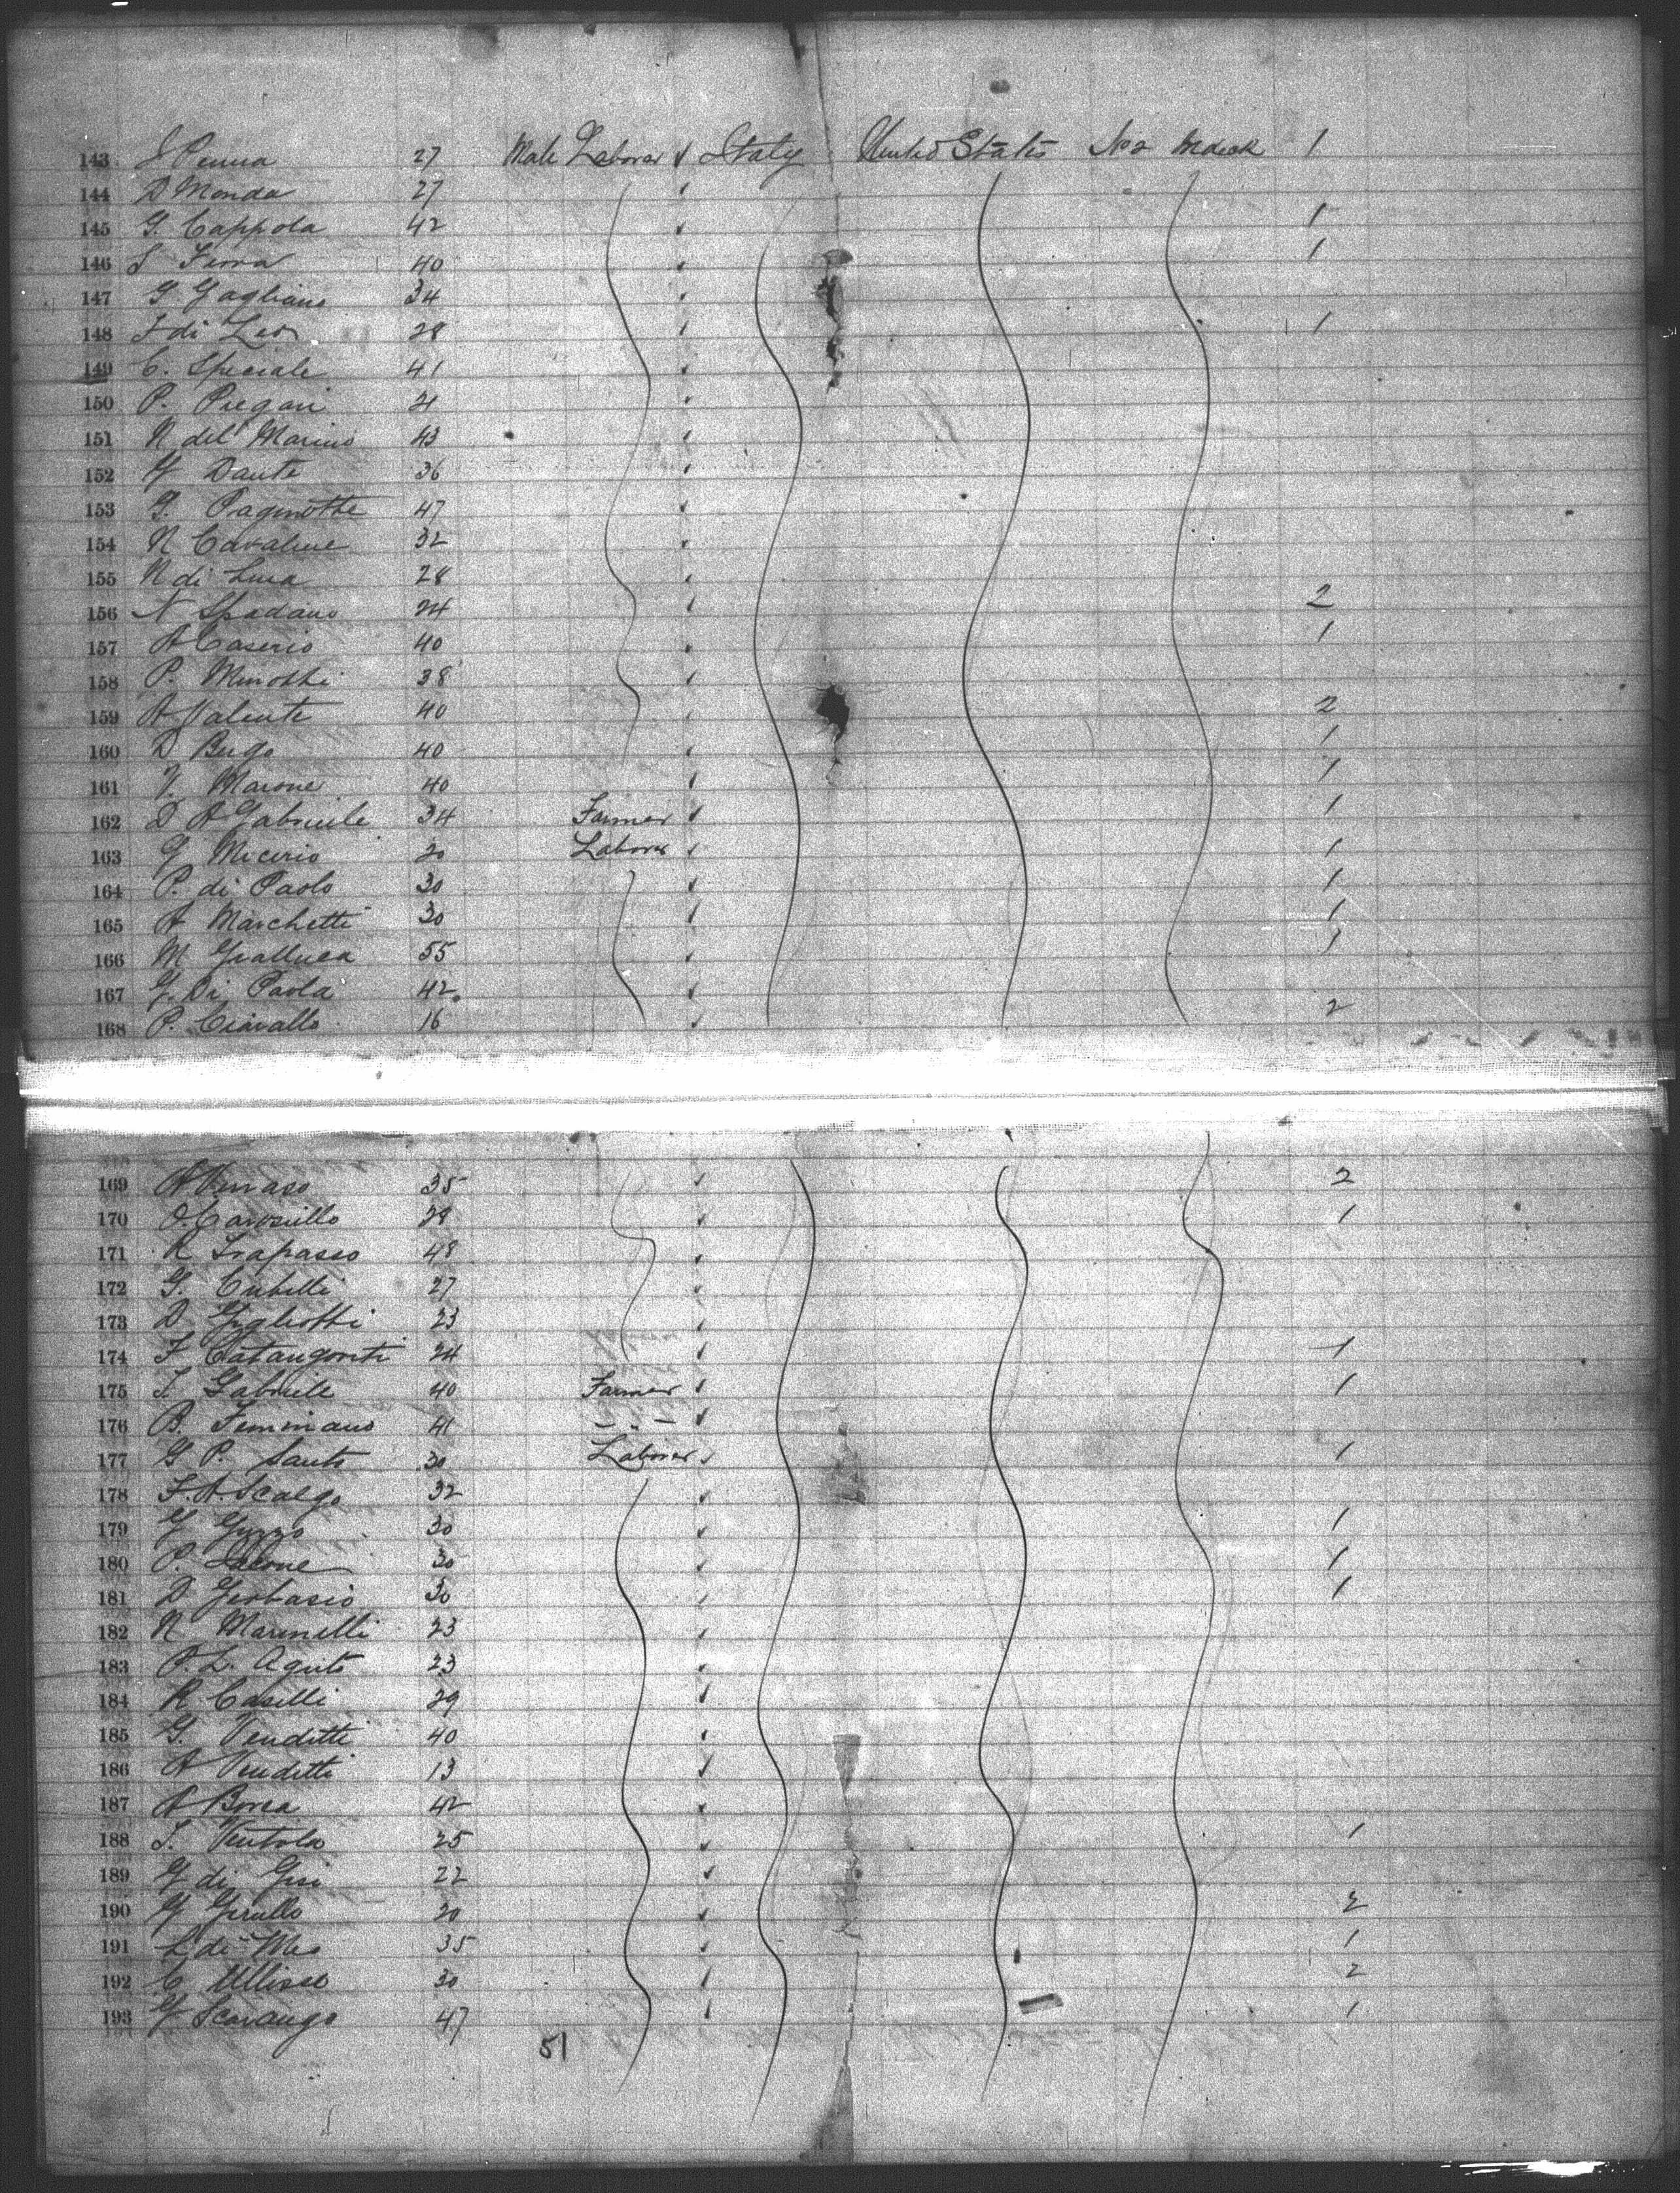 143 S Penna 27 Male Laborer ✓ Italy United States No 2 Mdeck 1
144 D Monda 27 ✓
145 G. Cappola 42 ✓ 1
146 S Ferra 40 ✓ 1
147 G Gagliano 34 ✓
148 F di Leo 28 ✓ 1
149 C. Speciale 41 ✓
150 P. Pregari 21 ✓
151 N del Marino 43 ✓
152 G Dante 36 ✓
153 G. Pagnotta 47 ✓
154 N Cavaline 32 ✓
155 N di Luca 28 ✓
156 N Spadano 24 ✓ 2
157 A Caserio 40 ✓ 1
158 P. Minotti 38 ✓
159 A Valente 40 ✓ 2
160 D Bugo 40 ✓ 1
161 V. Marone 40 ✓ 1
162 D A Gabriele 34 Farmer ✓ 1
163 G Micerio 20 Laborer ✓ 1
164 P. di Paolo 30 ✓ 1
165 A Marchetti 30 ✓ 1
166 M Gialluca 55 ✓ 1
167 G. Di Paola 42 ✓
168 P. Ciavallo 16 ✓ 2
169 A 35 ✓ 2
170 O. Carosiello 28 ✓ 1
171 R Trapasso 48 ✓
172 G. Cubelli 27 ✓
173 D Gigliotti 23 ✓
174 F Catangoriti 24 ✓ 1
175 S. Gabriele 40 Farmer ✓ 1
176 B. Feminiano 41 - " - ✓
177 G P. Santo 30 Laborer ✓ 1
178 F. A. Scalgo 32 ✓
179 G Guzzo 30 ✓ 1
180 P. Leone 30 ✓ 1
181 D Gerbasio 30 ✓ 1
182 N Marinelli 23 ✓
183 P. L. Aguto 23 ✓
184 R Caselli 29 ✓
185 G. Venditti 40 ✓
186 A Venditti 13 ✓
187 A Borea 42 ✓
188 S. Ventola 25 ✓ 1
189 G di Gisi 22 ✓
190 G Girullo 20 ✓ 2
191 L di Meo 35 ✓ 1
192 C Ulisse 30 ✓ 2
193 G Scarango 47 ✓ 1
51